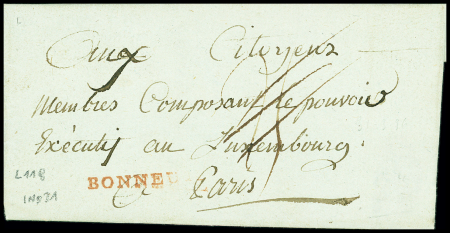 Aux Citoyens
Membres Composant le pouvoir
Exécutif au Luxembourg.
L118
BONNE
INDIA
à Paris